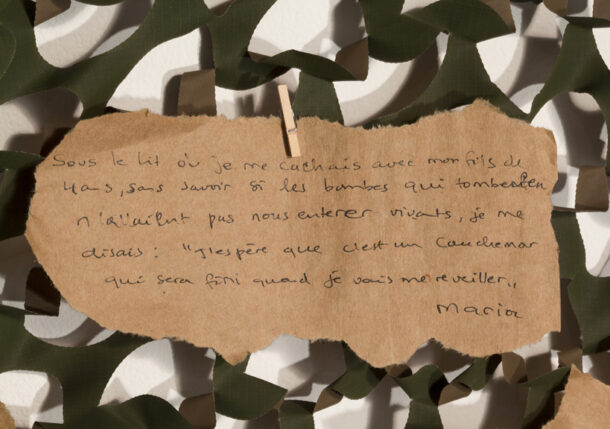 Sous le lit où je me cachais avec mon fils de
4 ans, sans savoir si les bombes qui tombaient
n'allaient pas nous enterer vivants, je me
disais : "J'espère que c'est un cauchemar
qui sera fini quand je vais me reveiller"
Maria